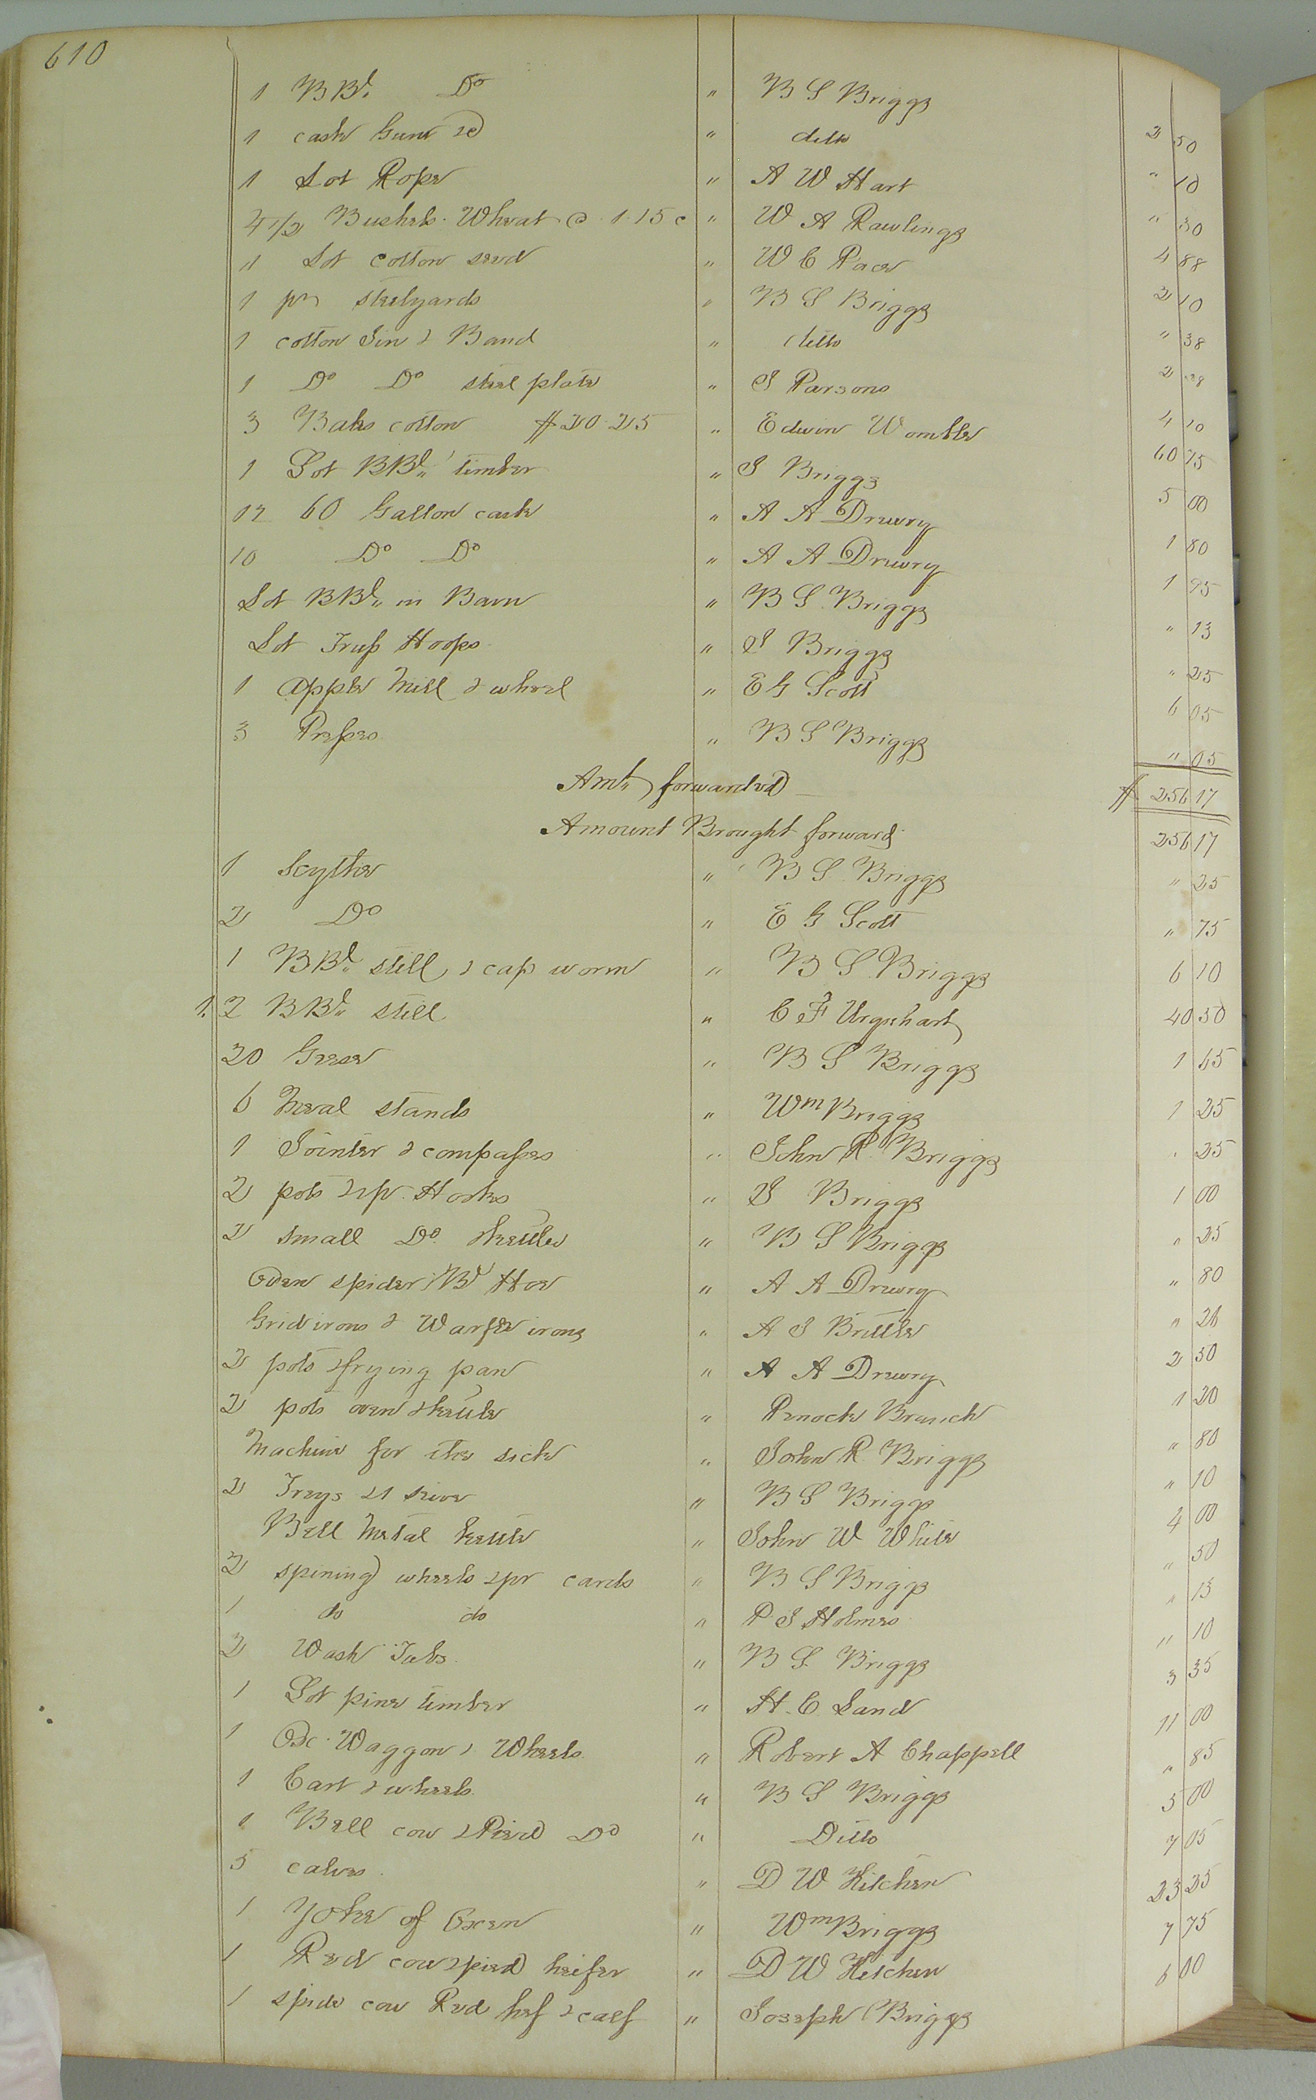 610
1 BBl. Do " B S Briggs 2 50
1 cask Gum &c " ditto " 10
1 Lot Rope " A W Hart " 30
4 1/2 Bushels Wheat @ 1.15 c " W A Rawlings 4 88
" Lot cotton seed " W C Pace 2 10
1 pr steelyards " B S Briggs " 38
1 cotton Gin & Band " ditto 2
1 Do Do steel plate " J Parsons 4 10
3 Bales cotton # 20.25 " Edwin Womble 60 75
1 Lot BBl. timber " J Briggs 5 00
12 60 Gallon cask " A A Drewry 1 80
10 Do Do " A A Drewry 1 95
Lot BBl. in Barn " B S Briggs " 13
Lot Truss Hoops " J Briggs " 25
1 apple Mill & wheel " E G Scott 6 05
3 Presses " B S Briggs " 05
Amt. forwarded $ 256 17
Amount Brought forward 256 17
1 Scythe " B S Briggs " 25
2 Do " E G Scott " 75
1 BBl. still, & cap worm " B S Briggs 6 10
1. 2 BBl. still " C F Urquhart 40 50
20 Geese " B S Briggs 1 65
6 Meal stands " Wm Briggs 1 25
1 Jointer & compasses " John R Briggs " 25
2 pots & pr. Hooks " J Briggs 1 00
2 small Do. & kettles " B S Briggs " 25
Oven spider Bd Hoe " A A Drewry " 80
Gridirons & Waffle irons " A J Brittle " 26
2 pots & frying pan " A A Drewry 2 50
2 pots oven & kettle " Penock Branch 1 20
Machine for the sick " John R Briggs " 80
2 Trays & 1 sieve " B S Briggs " 10
Bell Metal kettle " John W White 4 00
2 spining wheels & pr cards " B S Briggs " 50
1 do do " P J Holmes " 15
2 Wash Tubs " B S Briggs " 10
1 Lot pine timber " H. C Land 3 35
1 Ox Waggon & Wheels " Robert A Chappell 11 00
1 Cart & wheels " B S Briggs " 85
1 Bell cow & Pied Do " Ditto 5 00
5 calves " D W Kitchen 7 05
1 Yoke of Oxen " Wm Briggs 23 25
1 Red cow & pied heifer " D W Kitchen 7 75
1 pide cow Red hef & calf " Joseph Briggs 6 00